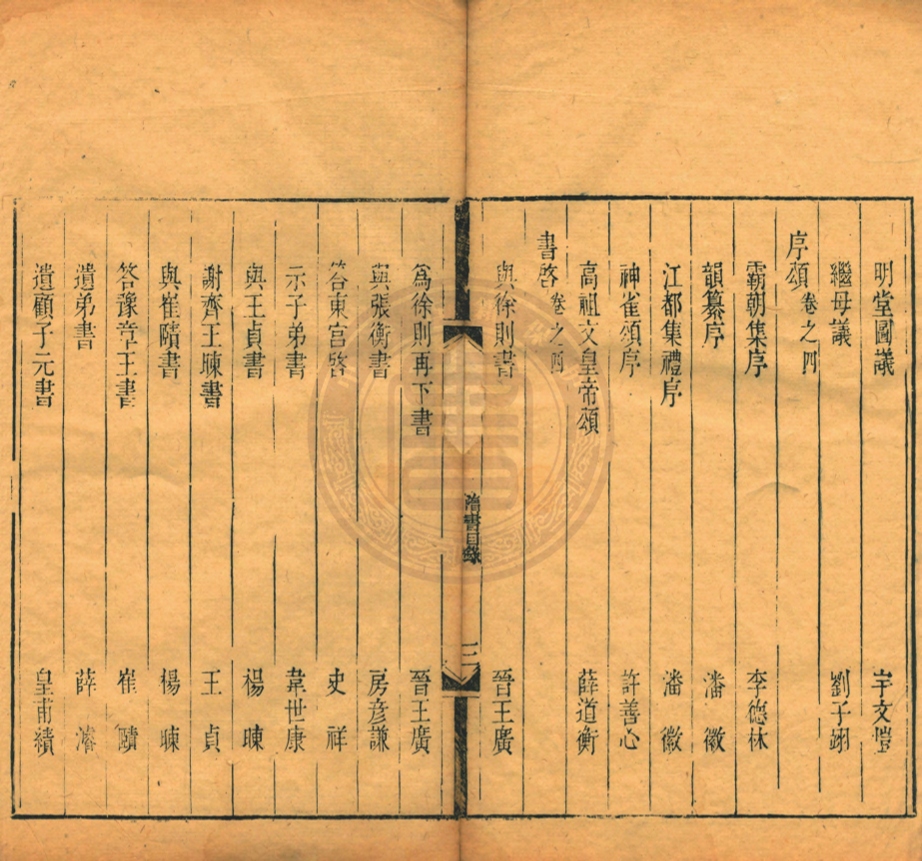 明堂圖議 宇文愷
繼母議 劉子翊
序頌 卷之四
霸朝集序 李德林
韻纂序 潘徽
江都集禮序 潘徽
神雀頌序 許善心
高祖文皇帝頌 薛道衡
書啓 卷之四
與徐則書 晉王廣
隋書目錄 三
為徐則再下書 晉王廣
與張衡書 房彥謙
答東宮啓 史祥
示子弟書 韋世康
與王貞書 楊暕
謝齊王暕書 王貞
與崔賾書 楊暕
答豫章王書 崔賾
遺弟書 薛濬
遺顧子元書 皇甫績